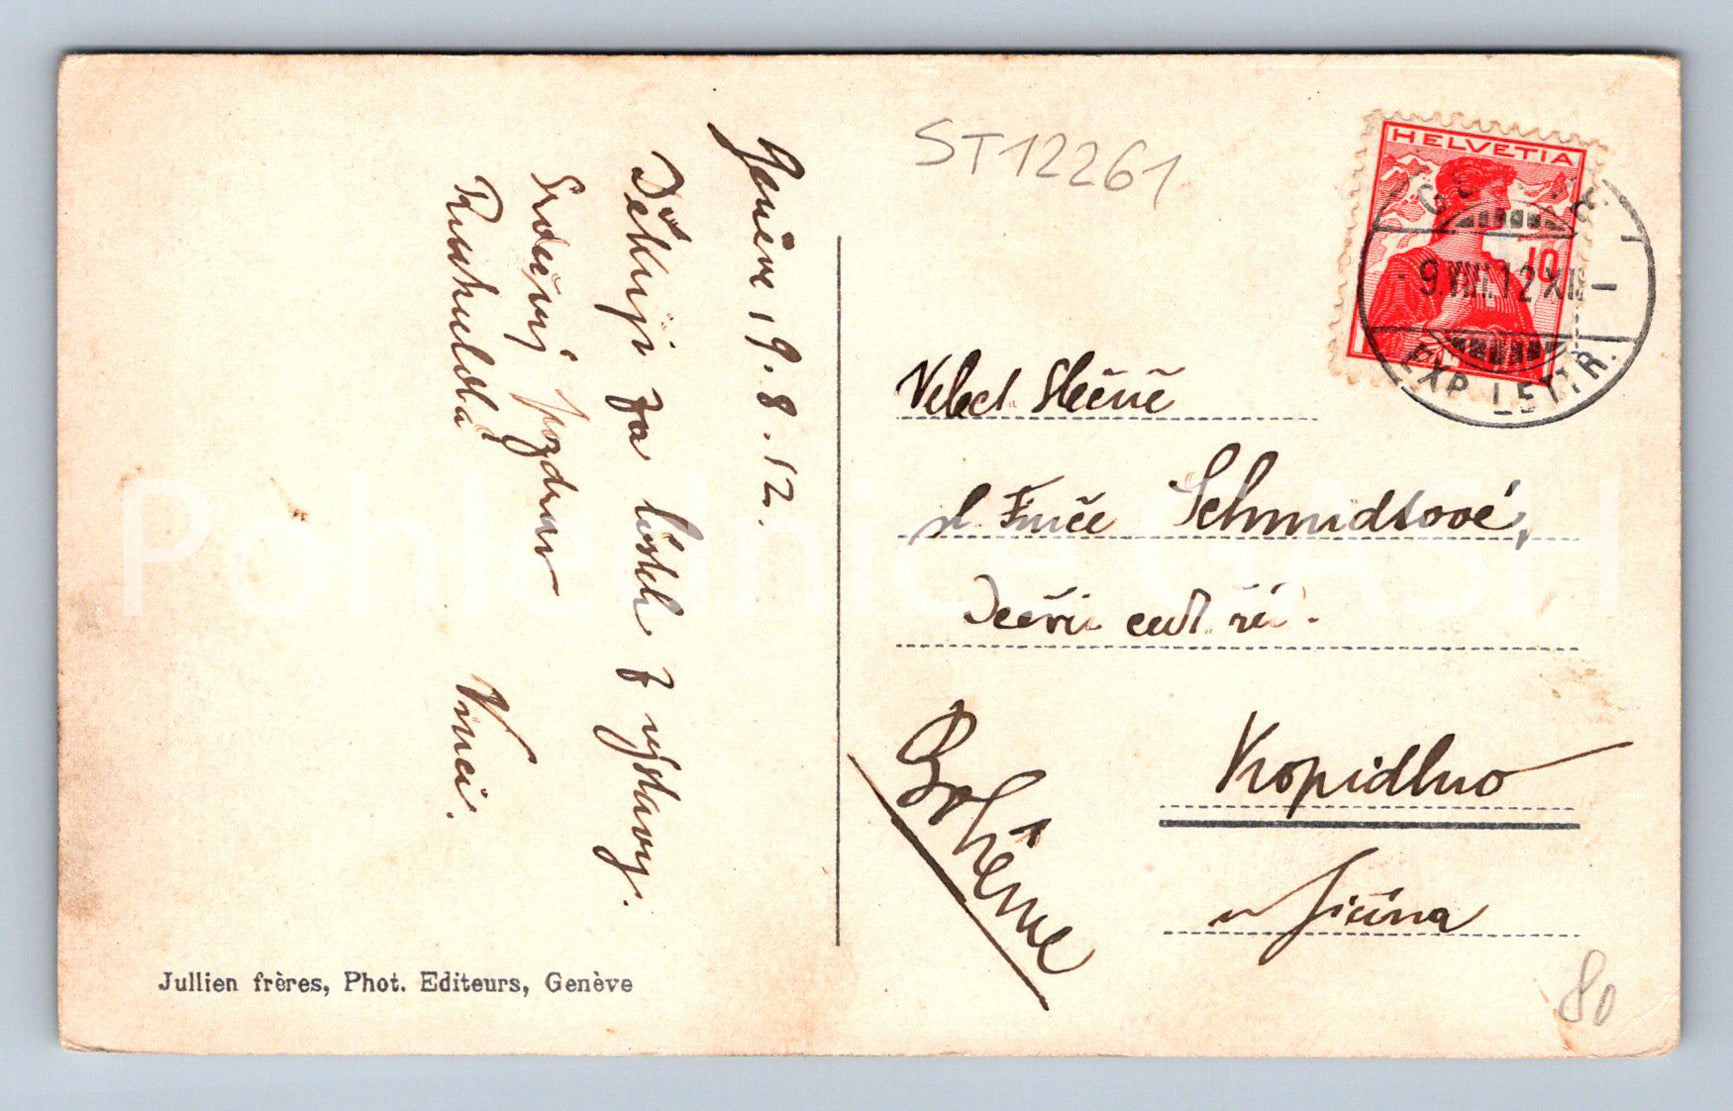 Genève 9.8.12.
Děkuji za lístek z výstavy.
Srdečný pozdrav
Vinci.
ST12261
HELVETIA
10
9.VIII.12 XII
EXP. LETTR.
Velect. slečně
sl. Fince Schmidtové,
Kopidlno
u Jičína
Bohême
Jullien frères, Phot. Editeurs, Genève
80
Pohlednice